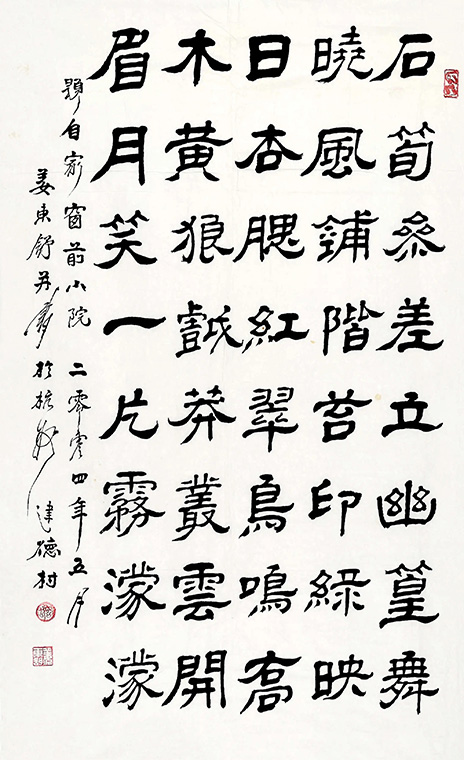 石筍參差立幽篁舞
曉風鋪階苔印綠映
日杏腮紅翠鳥鳴高
木黃狼戲莽叢雲開
眉月笑一片霧濛濛
題自家窗前小院 二零零四年五月
姜東舒并書於杭建德村